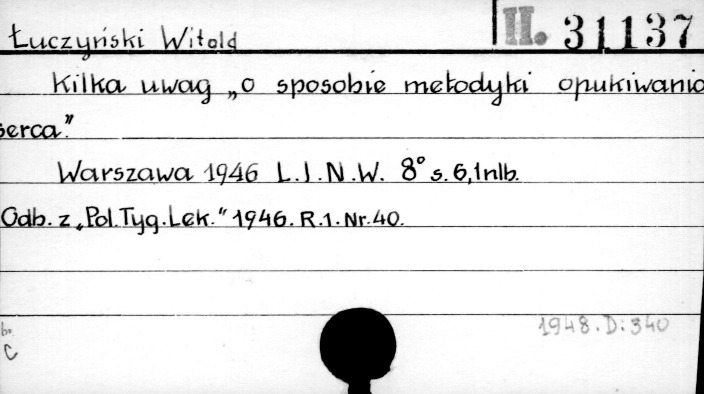 Łuczyński Witold II. 31137
Kilka uwag „o sposobie metodyki opukiwania
serca."
Warszawa 1946 L.I.N.W. 8° s. 6, 1 nlb.
Odb. z „Pol. Tyg. Lek." 1946. R. 1. Nr. 40.
1948. D: 340
bn
C